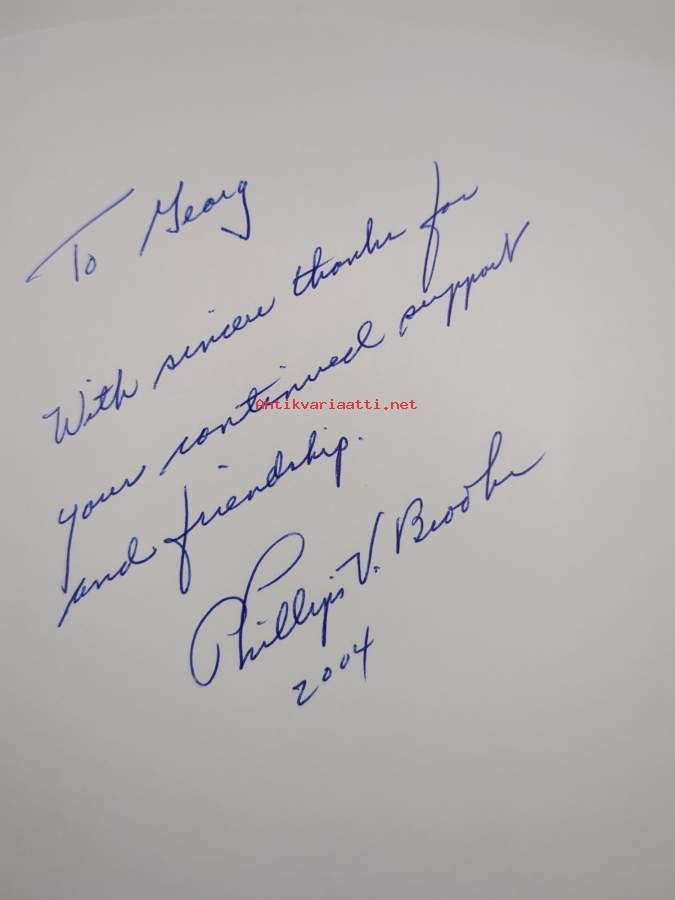 To Georg
With sincere thanks for
your continued support
and friendship.
Phillips V. Brooks
2004
Antikvariaatti.net